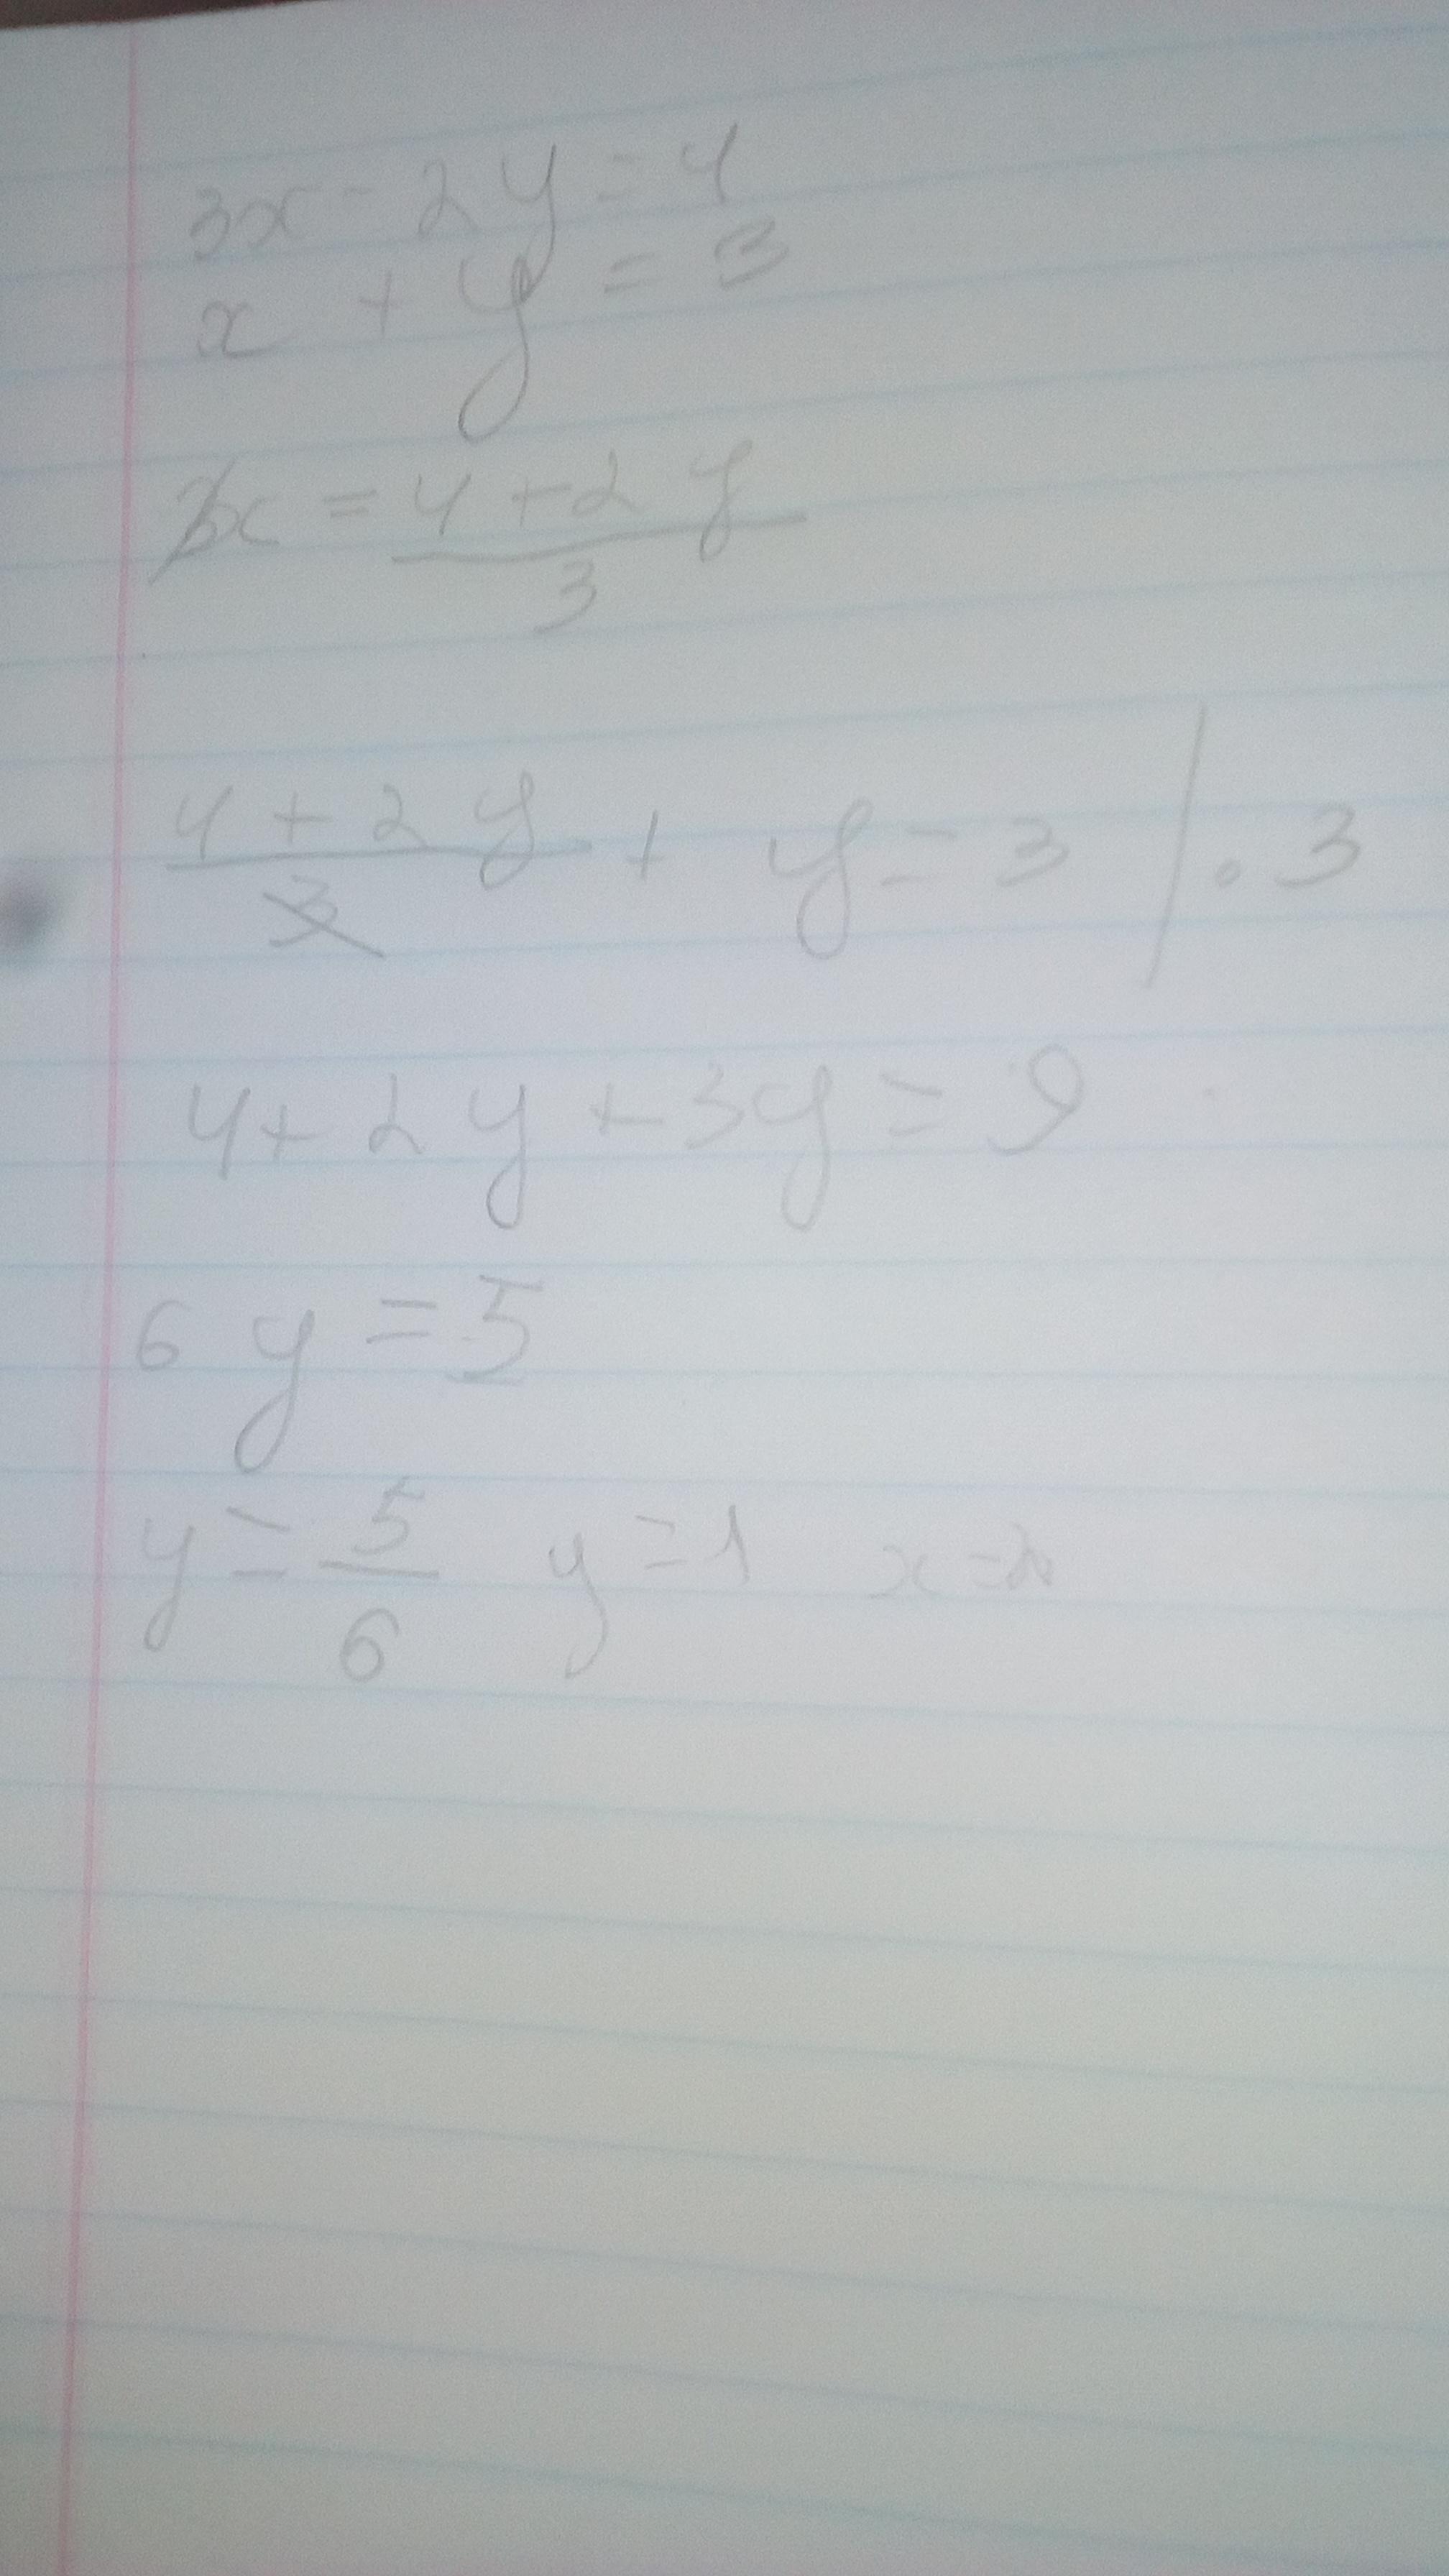 3x - 2y = 4
x + y = 3
3x = 4 + 2y / 3
4 + 2y / 3 + y = 3 | · 3
4 + 2y + 3y = 9
6y = 5
y = 5/6 y = 1 x = 2